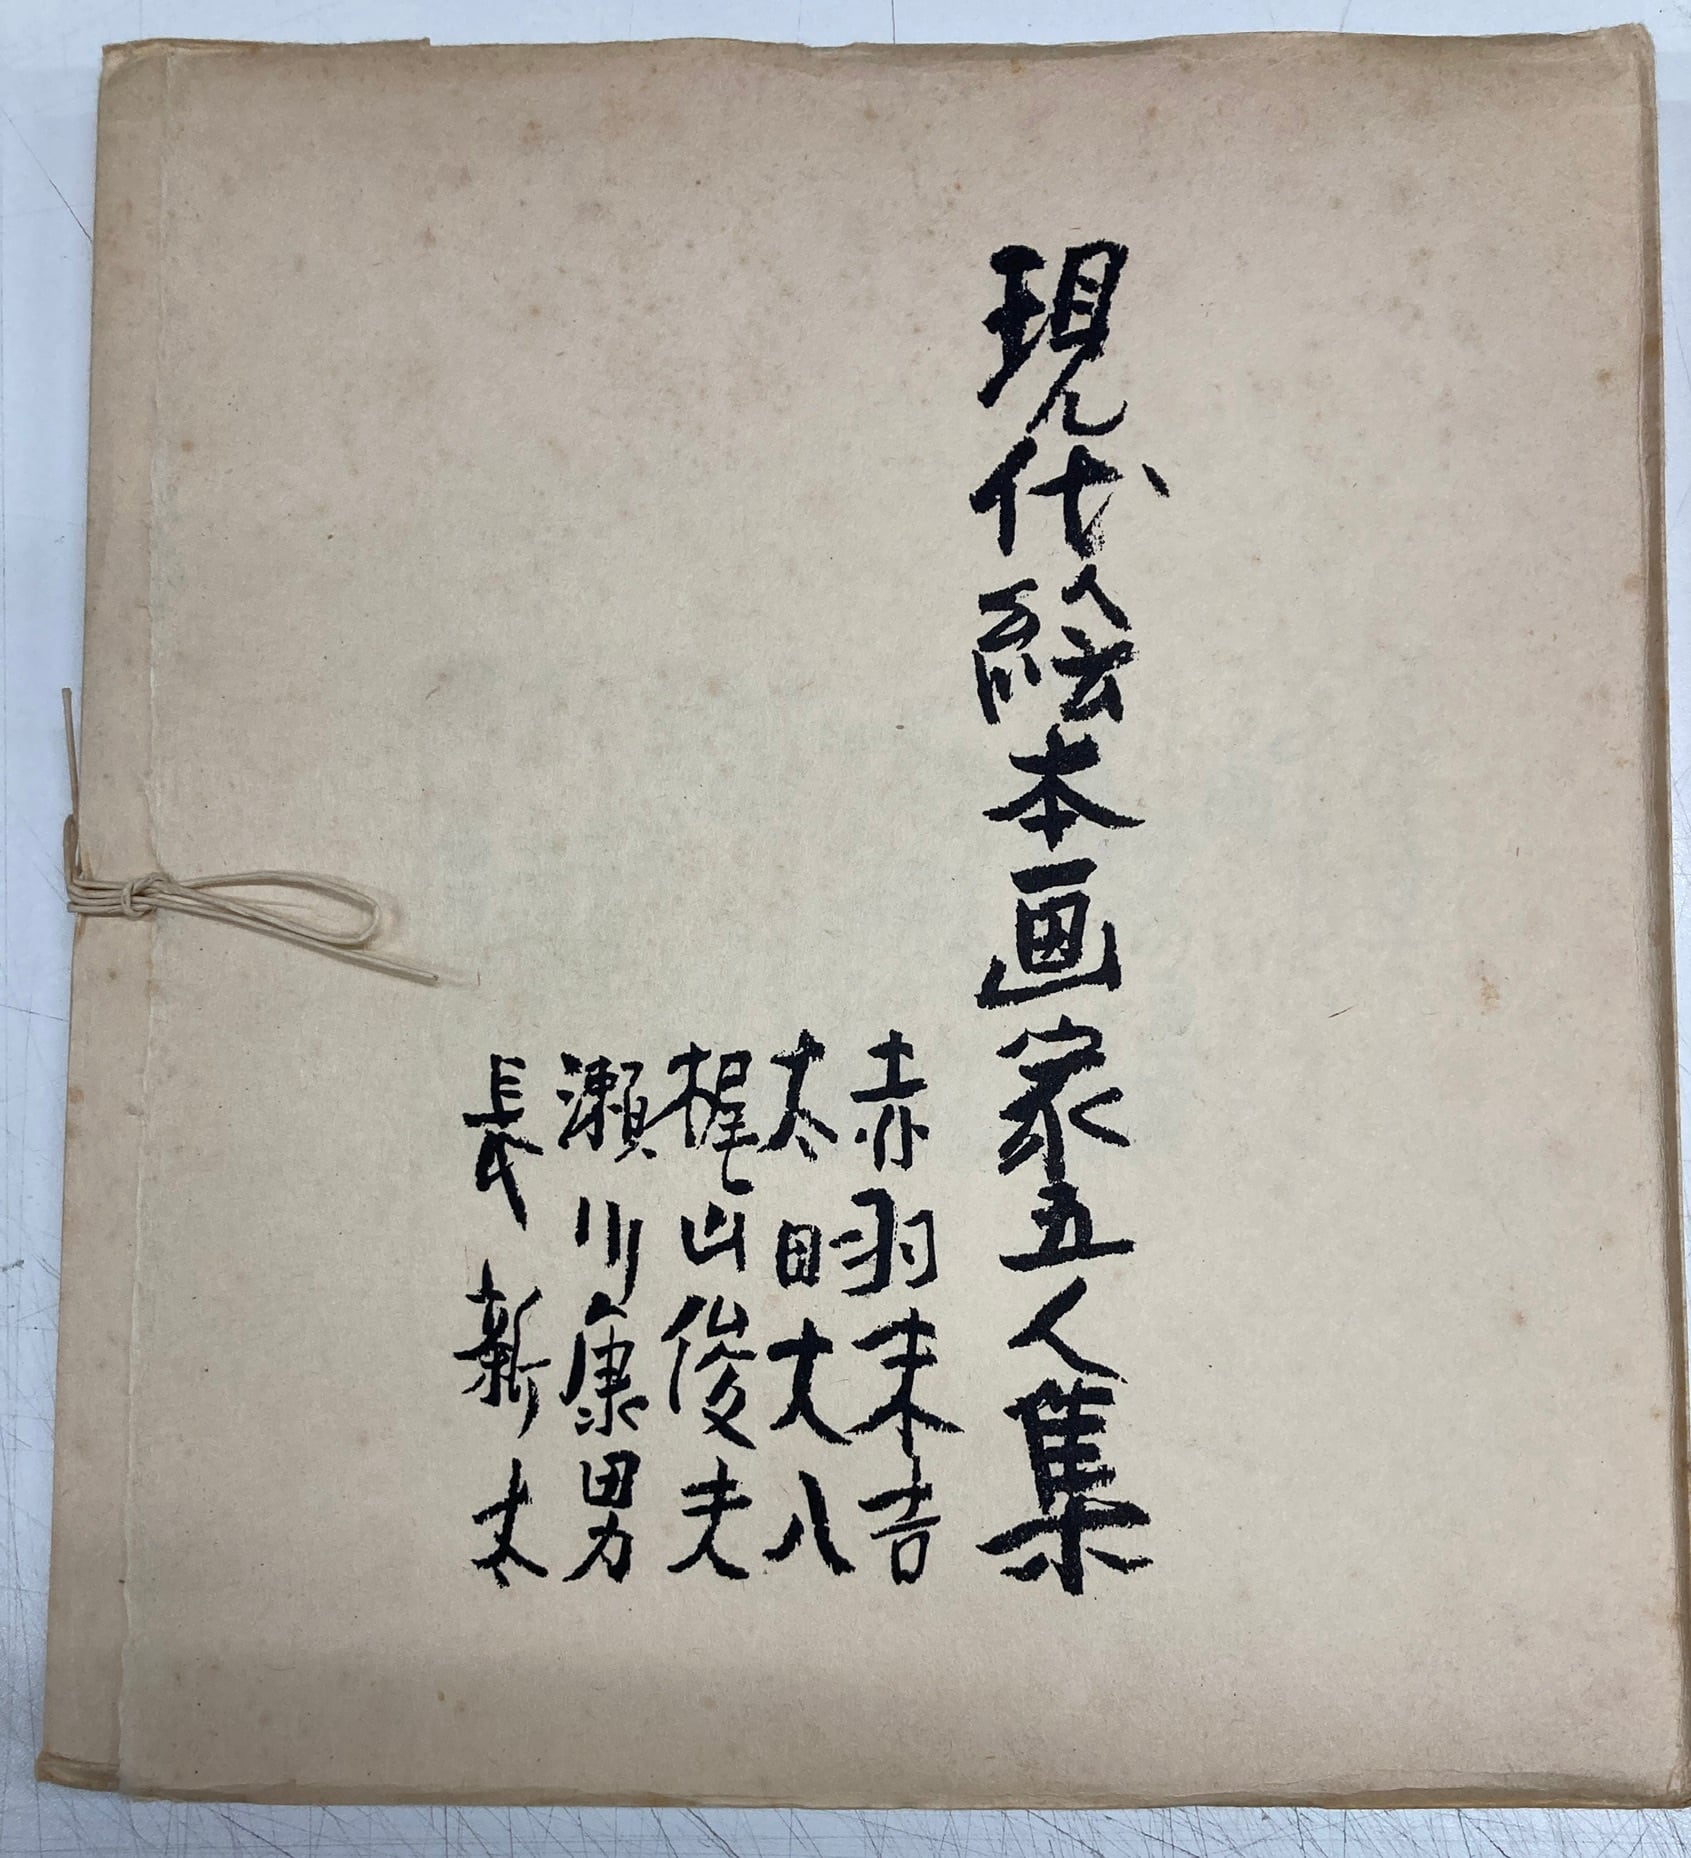 現代絵本画家五人集
赤羽末吉
太田大八
梶山俊夫
瀬川康男
長新太